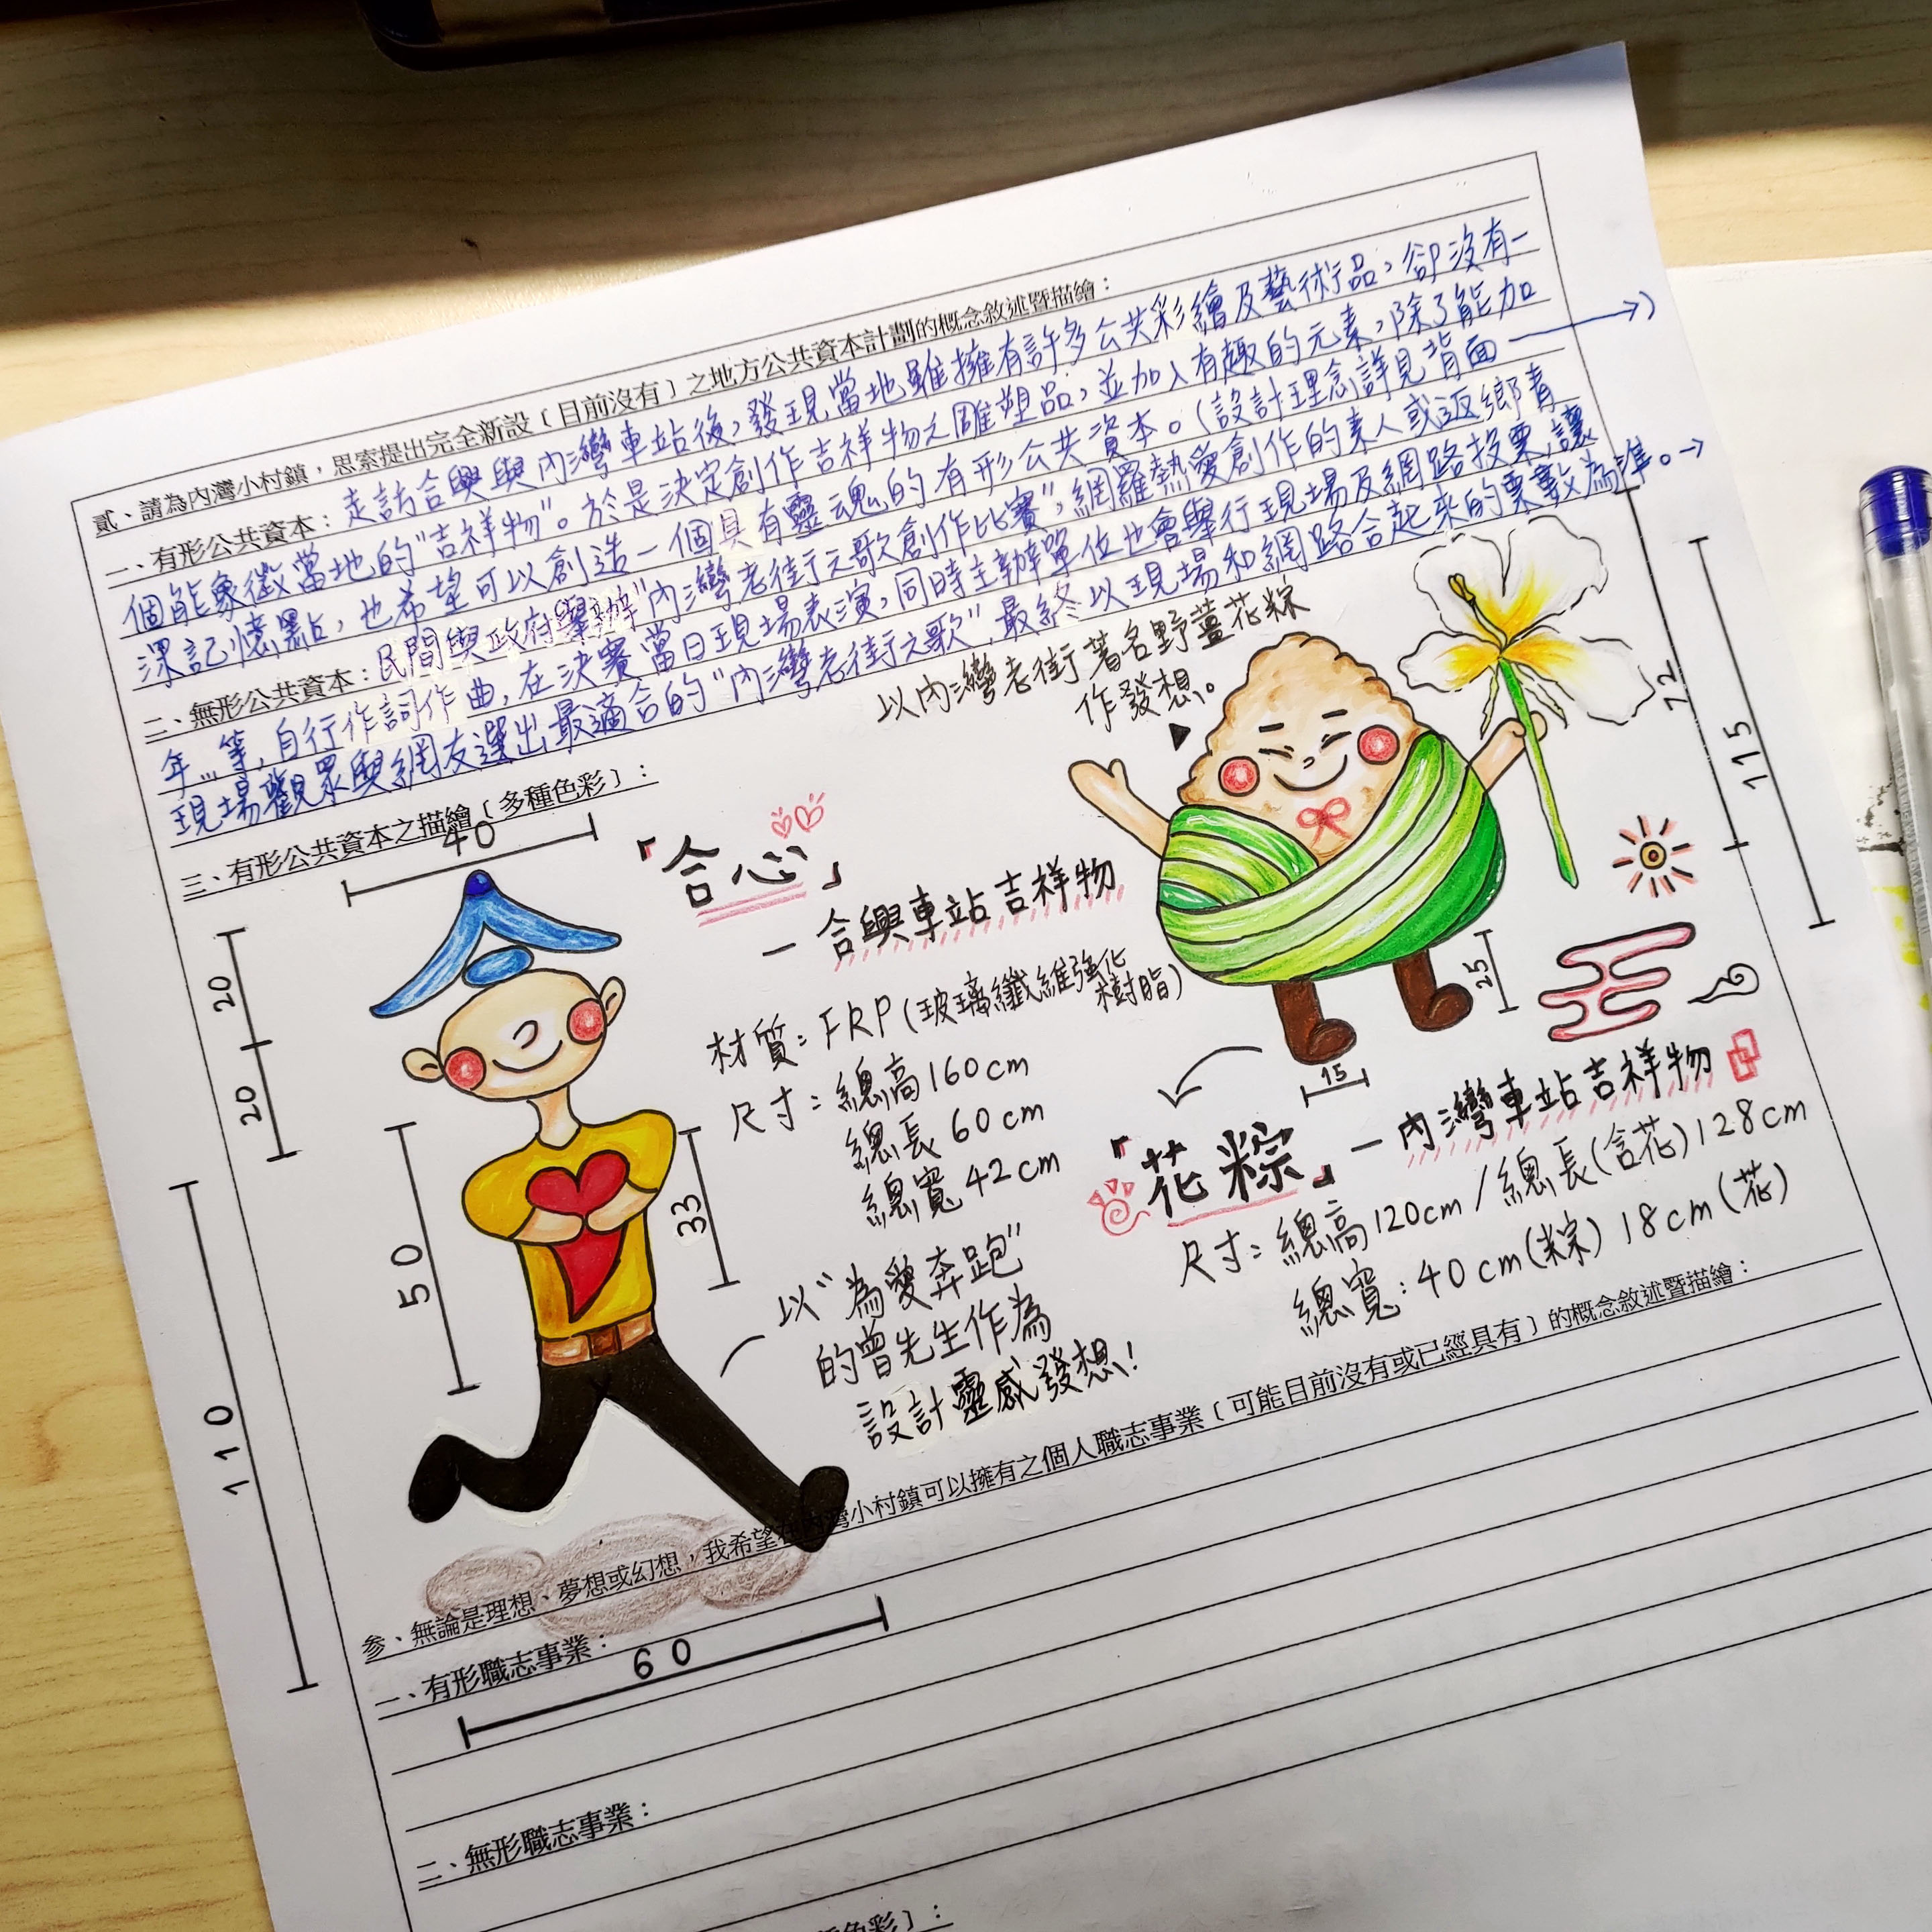 貳、請為內灣小村鎮，思索提出完全新設〔目前沒有〕之地方公共資本計劃的概念敘述暨描繪：
一、有形公共資本：走訪合興與內灣車站後，發現當地雖擁有許多公共彩繪及藝術品，卻沒有一
個能象徵當地的"吉祥物"。於是決定創作吉祥物之雕塑品，並加入有趣的元素，除了能加
深記憶點，也希望可以創造一個具有靈魂的有形公共資本。（設計理念詳見背面→）
二、無形公共資本：民間與政府舉辦"內灣老街之歌創作比賽"，網羅熱愛創作的素人或返鄉青
年...等，自行作詞作曲，在決賽當日現場表演，同時主辦單位也會舉行現場及網路投票，讓
現場觀眾與網友選出最適合的"內灣老街之歌"，最終以現場和網路合起來的票數為準。→
三、有形公共資本之描繪〔多種色彩〕：
以內灣老街著名野薑花粽
作發想。
40
20
20
50
33
110
60
「合心」
－合興車站吉祥物
材質：FRP（玻璃纖維強化
樹脂）
尺寸：總高160cm
總長60cm
總寬42cm
以"為愛奔跑"
的曾先生作為
設計靈感發想！
72
115
25
15
「花粽」－內灣車站吉祥物
尺寸：總高120cm／總長(含花)128cm
總寬：40cm(粽) 18cm(花)
參、無論是理想、夢想或幻想，我希望在內灣小村鎮可以擁有之個人職志事業〔可能目前沒有或已經具有〕的概念敘述暨描繪：
一、有形職志事業：
二、無形職志事業：
色彩〕：